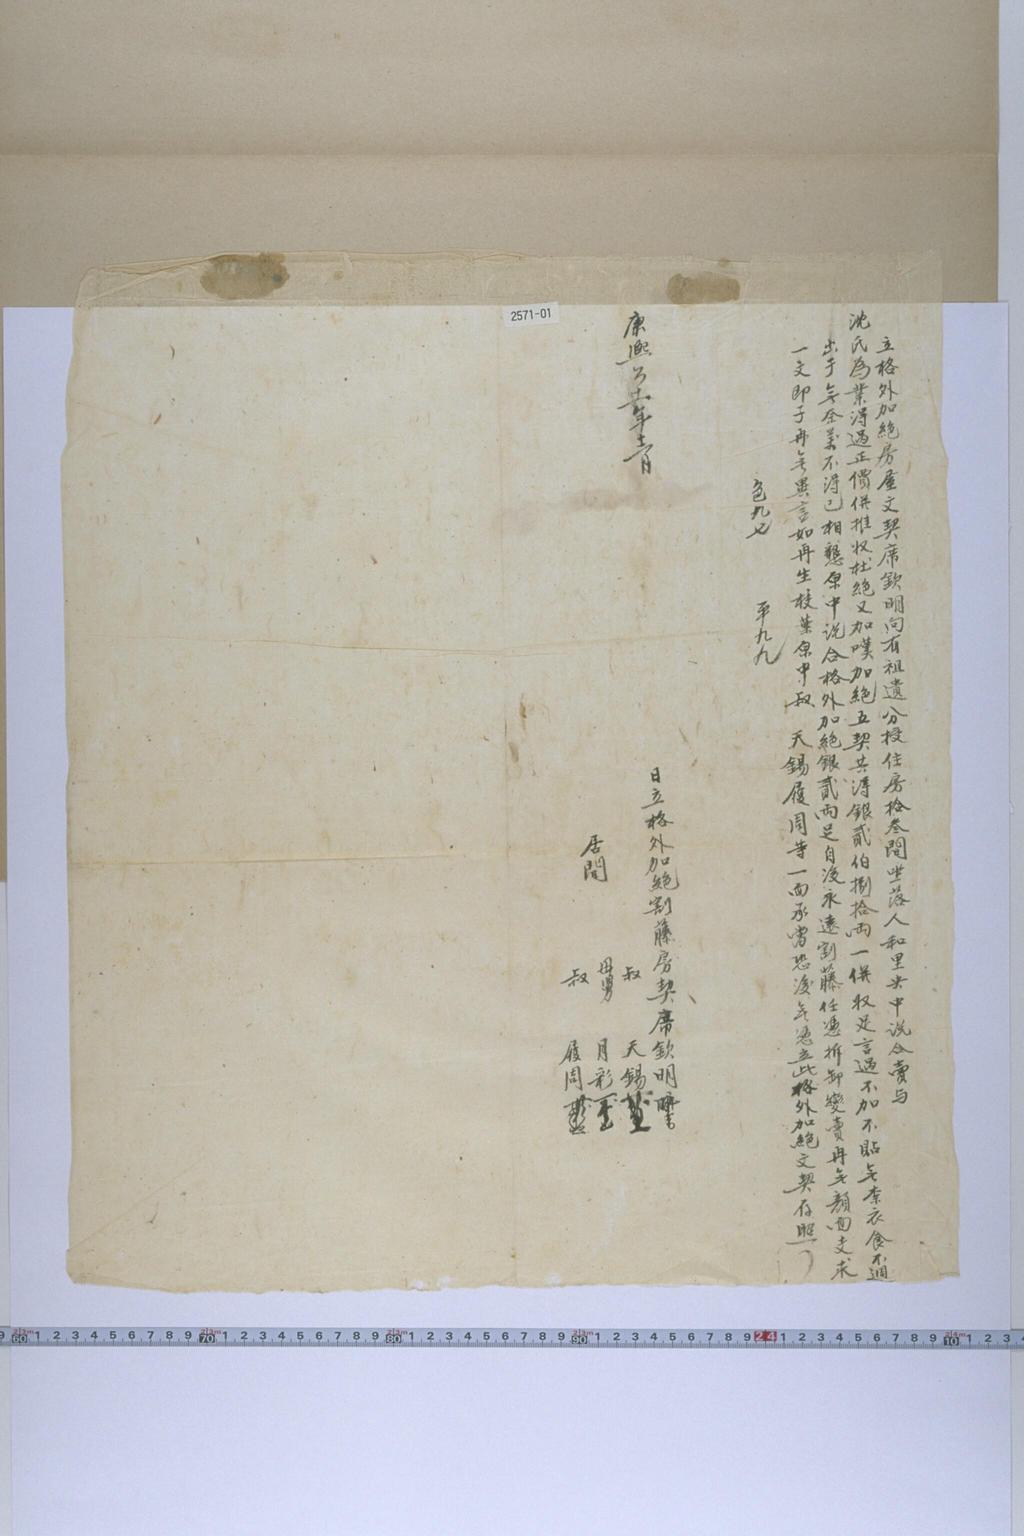 立格外加絶房屋文契席欽明向有祖遺分授住房拾叁間坐落人和里央中説合賣与
沈氏為業淂過正價併推收杜絶又加嘆加絶五契共淂銀貳伯捌拾両一併收足言過不加不貼無奈衣食不週
出于無奈萬不淂已相懇原中説合格外加絶銀貳両足自後永遠割藤任憑拆卸變賣再無顔面支求
一文即子再無異言如再生枝葉原中叔 天錫履周等一面承當恐後無憑立此格外加絶文契存照
色九七 平九九
康熙 年 月
日立格外加絶割藤房契席欽明
叔 天錫
居間 母舅 月彩
叔 履周
2571-01